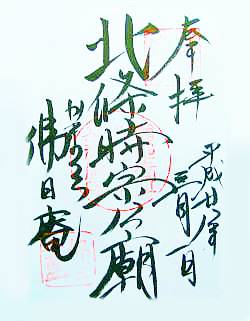 奉拝
平成廿八年
三月一日
北條時宗公廟
かまくら
佛日庵